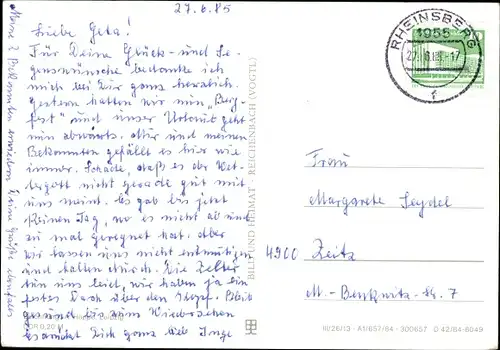 27.6.85
Liebe Geta!
Für Deine Glück- und Se-
genswünsche bedanke ich
mich bei Dir ganz herzlich.
Gestern hatten wir nun „Berg-
fest" und unser Urlaub geht
nun abwärts. Mir und meinen
Bekannten gefällt es hier wie
immer. Schade, daß es der Wet-
tergott nicht gerade gut mit
uns meint. Es gab bis jetzt
keinen Tag, wo es nicht ab und
zu mal geregnet hat. Aber
wir lassen uns nicht entmutigen
und halten durch. Die Zelter
tun uns leid, wir haben ja ein
festes Dach über den Kopf. Bleib
gesund bis zum Wiedersehen
es grüßt Dich ganz lieb Inge
Meine 2 Bekannten
BILD UND HEIMAT · REICHENBACH (VOGTL)
RHEINSBERG
1955
Frau
Margarete Seydel
4900 Zeitz
M.-Benknitz-Str. 7
III/26/13 · A1/657/84 · 300657 D 42/84-8049